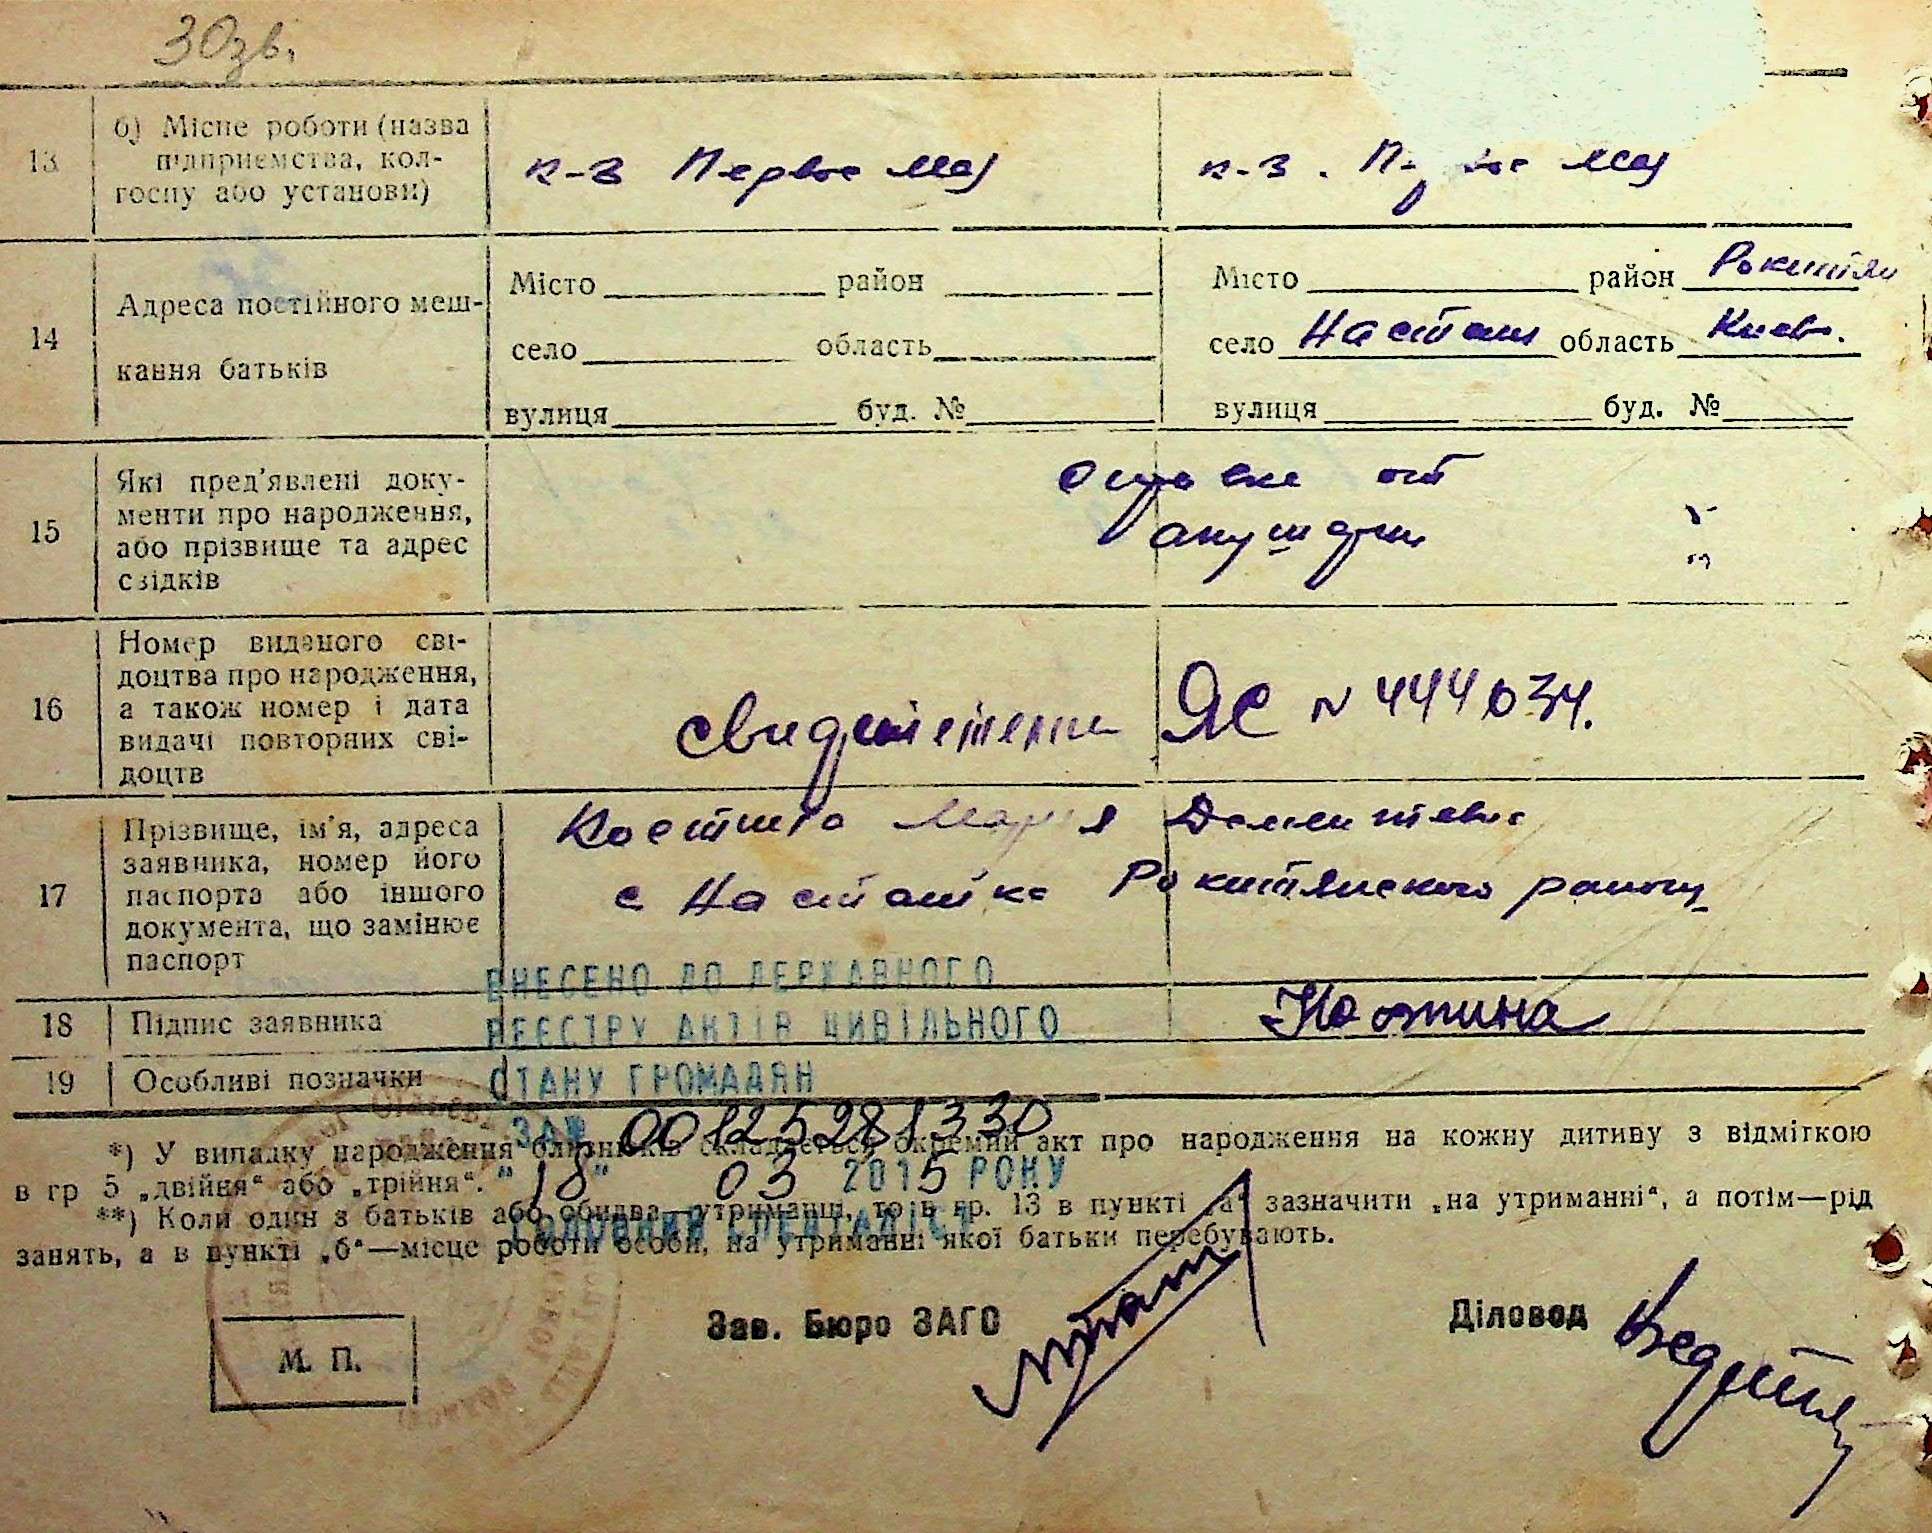 30зв.
13
б) Місце роботи (назва
підприємства, кол-
госпу або установи)
к-з Первое Мая
к-з. П
Мая
14
Адреса постійного меш-
кання батьків
Місто район
село область
вулиця буд. №
Місто район Рокитян
село Насташка область Киевс.
вулиця буд. №
15
Які пред'явлені доку-
менти про народження,
або прізвище та адрес
свідків
Справка от
акушерки
16
Номер виданого сві-
доцтва про народження,
а також номер і дата
видачі повторних сві-
доцтв
свидетельство ЯС № 444034.
17
Прізвище, ім'я, адреса
заявника, номер його
паспорта або іншого
документа, що замінює
паспорт
Костина Мария
с Насташка Рокитянского району
18 Підпис заявника
Костина
19 Особливі позначки
ВНЕСЕНО ДО ДЕРЖАВНОГО
РЕЄСТРУ АКТІВ ЦИВІЛЬНОГО
СТАНУ ГРОМАДЯН
ЗА № 00125281330
"18" 03 2015 РОКУ
ГОЛОВНИЙ СПЕЦІАЛІСТ
*) У випадку народження близнюків складається окремий акт про народження на кожну дитину з відміткою
в гр 5 „двійня“ або „трійня“.
**) Коли один з батьків або обидва—утриманці, то в гр. 13 в пункті „а“ зазначити „на утриманні“, а потім—рід
занять, а в пункті „б“—місце роботи особи, на утриманні якої батьки перебувають.
М. П.
Зав. Бюро ЗАГС
Діловод